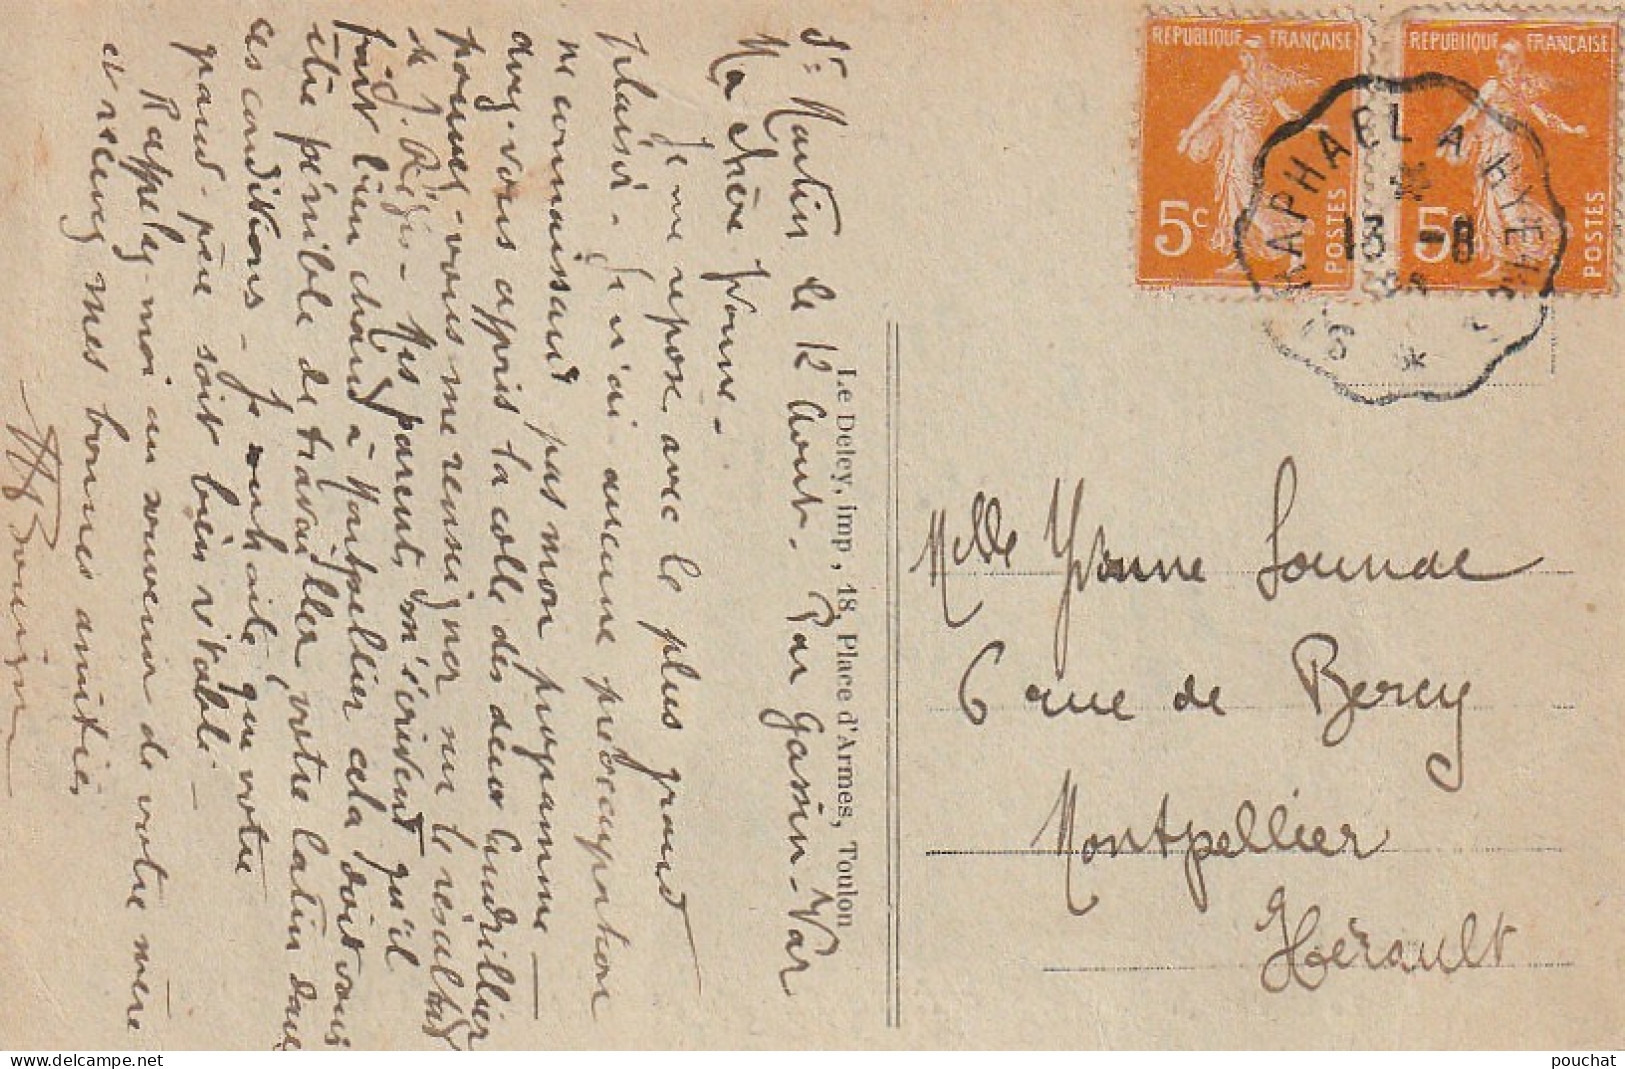 St Martin le 12 Aout. Par Gassin-Var
Ma chère Yvonne-
Je me repose avec le plus grand
plaisir. Je n'ai aucune préoccupation
ne connaissant pas mon programme-
avez-vous appris la colle des deux Cudrillier
pouvez-vous me renseigner sur le résultat
de J. Régis- Mes parents m'écrivent qu'il
fait bien chaud à Montpellier cela doit vous
être pénible de travailler votre latin dans
ces conditions- Je souhaite que votre
grand-père soit bien rétabli-
Rappelez-moi au souvenir de votre mère
et recevez mes bonnes amitiés
Le Deley, imp, 18, Place d'Armes, Toulon
REPUBLIQUE FRANÇAISE
5c
POSTES
REPUBLIQUE FRANÇAISE
5c
POSTES
RAPHAEL A HYERES
13 -8
Melle Yvonne Lounac
6 rue de Bercy
Montpellier
Hérault
pouchat